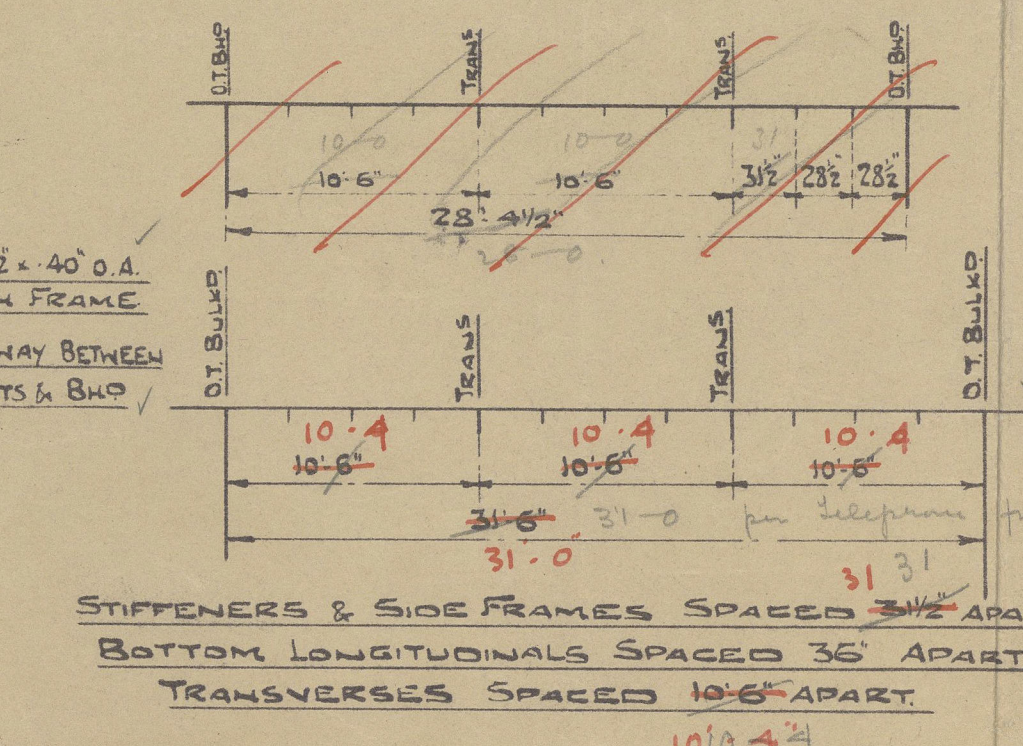 O.T. BHD TRANS. TRANS. O.T. BHD
10-0 10-0 31
10'-6" 10'-6" 31½" 28½" 28½"
28'-4½"
28-0.
2" x .40" O.A.
FRAME
WAY BETWEEN
TS & BHD
O.T. BULKD. TRANS TRANS O.T. BULKD.
10.4 10.4 10.4
10'-6" 10'-6" 10'-6"
31'-6" 31-0 per Telephone
31'-0"
31 31
STIFFENERS & SIDE FRAMES SPACED 31½" APA
BOTTOM LONGITUDINALS SPACED 36" APART
TRANSVERSES SPACED 10'-6" APART.